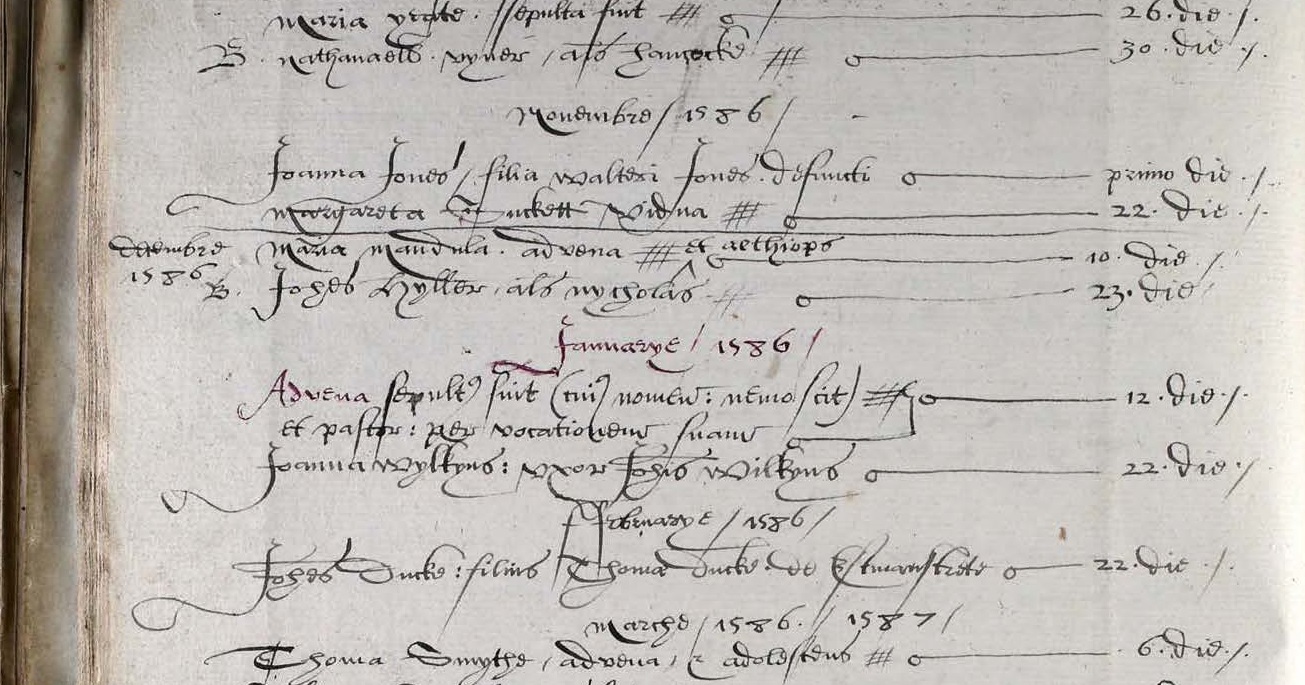 Maria yeate . sepulta fuit 26 . die /.
B . Nathanaell . vyner / als hancocke 30 . die /.
Novembre / 1586 /
Joanna Jones / filia walteri Jones . defuncti primo die ./.
Margareta Duckett Vidua 22 . die ./.
Decembre Maria Mandula . advena et aethiops 10 . die ./.
1586 B . Johes Hyller . als nycholas 23 . die /
Januarye / 1586 /
Advena sepult fuit (cui nomen : nemo scit) 12 . die ./.
et pastor : per vocationem suam
Joanna Wylkyns : vxor Johis Wilkyns 22 . die ./.
Februarye / 1586 /
Johes Ducke : filius Thomae Ducke . de Estmanstrete 22 . die ./.
Marche / 1586 . / 1587 /
Thoma Smythe / advena , & adolescens 6 . die /.